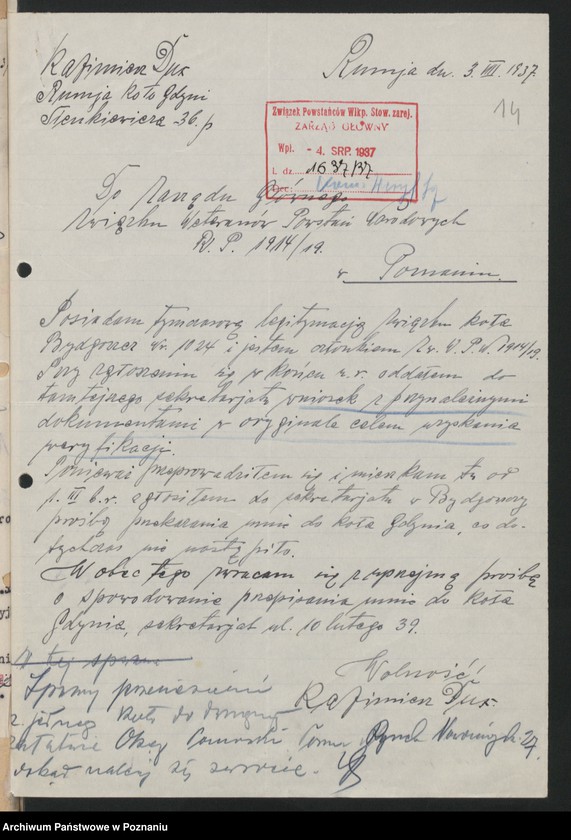 Kazimierz Dux
Rumja koło Gdyni
Sienkiewicza 36. p
Rumja dn. 3. VIII. 1937.
14
Związek Powstańców Wlkp. Stow. zarej.
ZARZĄD GŁÓWNY
Wpł. - 4. SRP. 1937
l. dz. 1637/37
Do Zarządu Głównego
Związku Weteranów Powstań Narodowych
R. P. 1914/19.
w Poznaniu.
Posiadam tymczasową legitymację Związku koła
Bydgoszcz Nr. 1024 i jestem członkiem Zw. W. P. N. 1914/19.
Przy zgłoszeniu się w końcu z. r. oddałem do
tamtejszego sekretarjatu wniosek z przynależnymi
dokumentami w oryginale celem uzyskania
weryfikacji.
Ponieważ przeprowadziłem się i mieszkam tu od
1. III b. r. zgłosiłem do sekretarjatu w Bydgoszczy
prośbę przekazania mnie do koła Gdynia, co do-
tychczas nie nastąpiło.
Wobec tego zwracam się z uprzejmą prośbą
o spowodowanie przepisania mnie do koła
Gdynia, sekretarjat ul. 10 lutego 39.
W tej spraw
Wolność!
Kazimierz Dux.
Sprawy przeniesień
z jednego koła do drugiego
załatwia Okręg Pomorski Toruń, Rynek Nowomiejski 27,
dokąd należy się zwrócić.
Archiwum Państwowe w Poznaniu